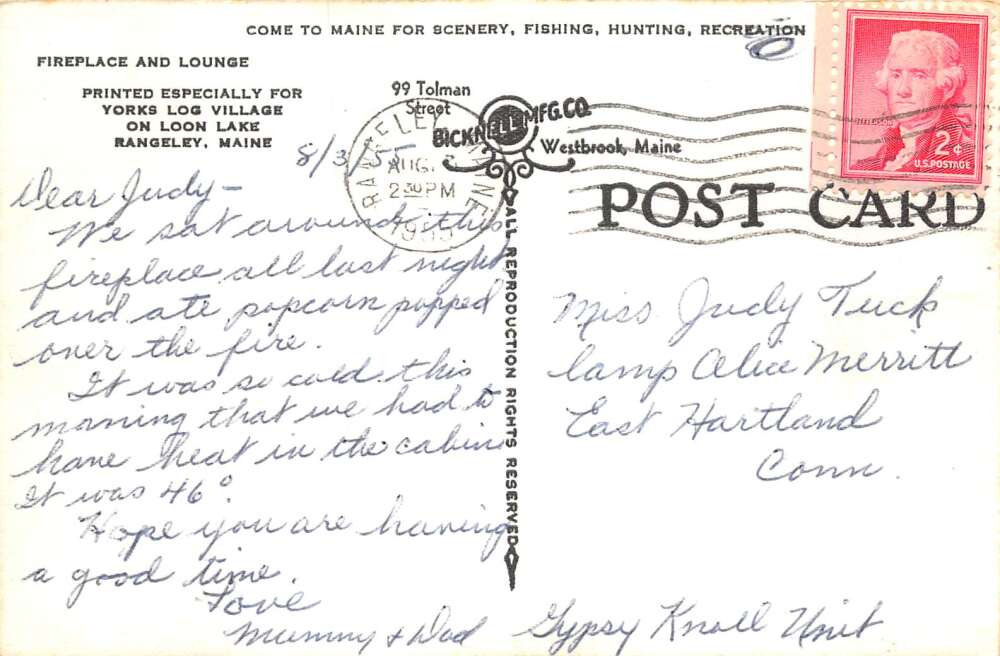 COME TO MAINE FOR SCENERY, FISHING, HUNTING, RECREATION
FIREPLACE AND LOUNGE
PRINTED ESPECIALLY FOR
YORKS LOG VILLAGE
ON LOON LAKE
RANGELEY, MAINE
99 Tolman
Street
BICKNELL MFG. CO.
Westbrook, Maine
2¢
U.S. POSTAGE
RANGELEY MAINE
AUG
2 30 PM
1955
POST CARD
ALL REPRODUCTION RIGHTS RESERVED
8/3/55
Dear Judy –
We sat around this
fireplace all last night
and ate popcorn popped
over the fire.
It was so cold this
morning that we had to
have heat in the cabin.
It was 46°.
Hope you are having
a good time.
Love
Mummy + Dad
Miss Judy Tuck
Camp Alice Merritt
East Hartland
Conn.
Gypsy Knoll Unit